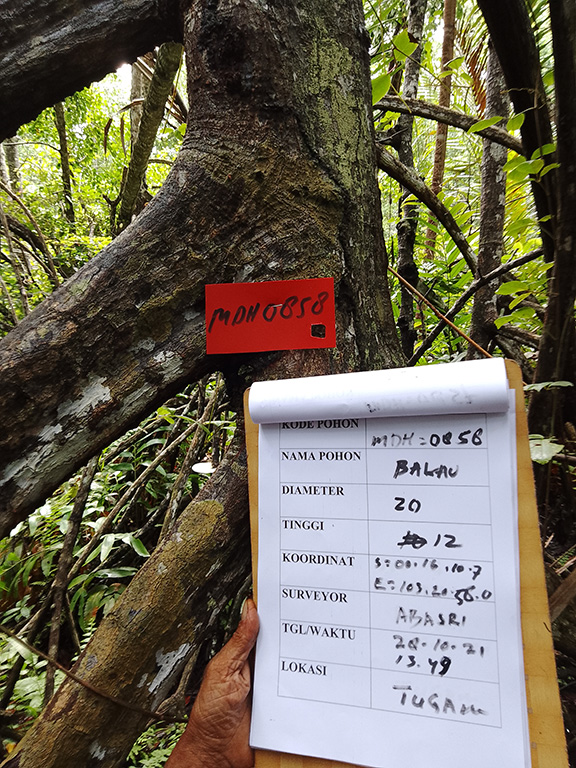 MDH0858
KODE POHON MDH=0858
NAMA POHON BALAU
DIAMETER 20
TINGGI 12
KOORDINAT S=00.16.10.7
E=103.20.56.0
SURVEYOR ABASRI
TGL/WAKTU 28-10-21
13.49
LOKASI